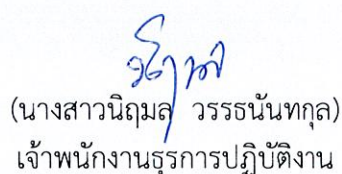 (นางสาวนิฤมล วรรธนันทกุล)
เจ้าพนักงานธุรการปฏิบัติงาน